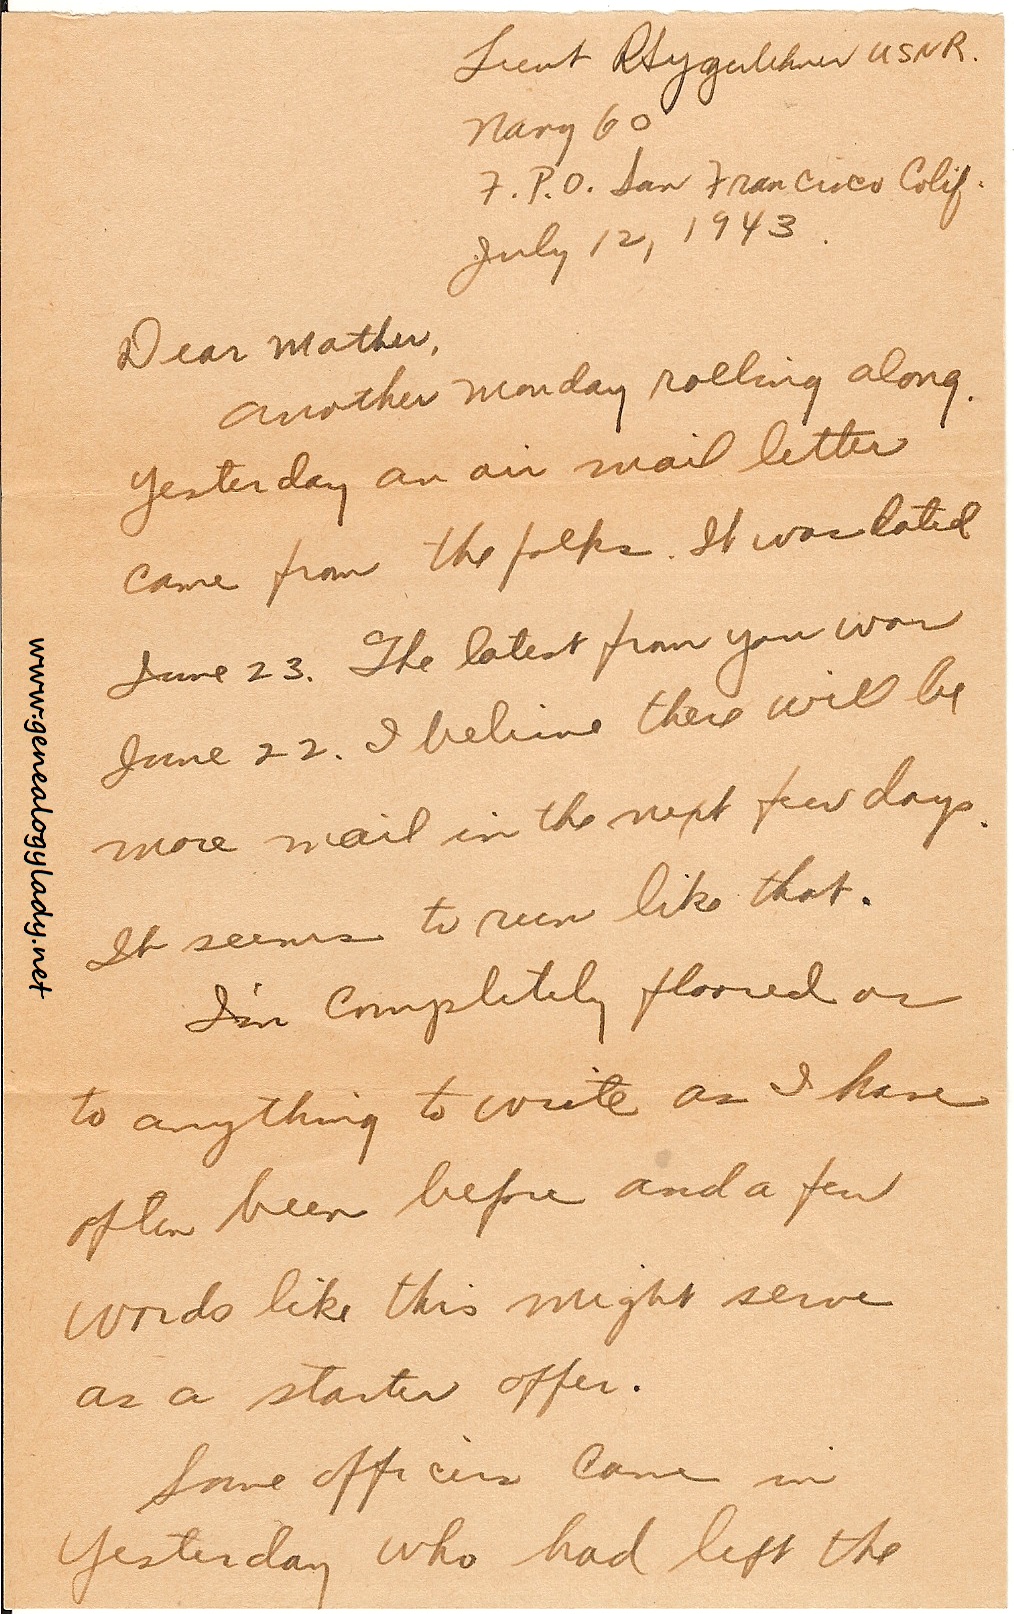 Lieut R H Yggerlehner USNR.
Navy 60
F.P.O. San Francisco Calif.
July 12, 1943.
Dear Mother,
Another Monday rolling along.
Yesterday an air mail letter
came from the folks. It was dated
June 23. The latest from you was
June 22. I believe there will be
more mail in the next few days.
It seems to run like that.
I'm completely floored as
to anything to write as I have
often been before and a few
words like this might serve
as a starter offer.
Some officers came in
yesterday who had left the
www.genealogylady.net